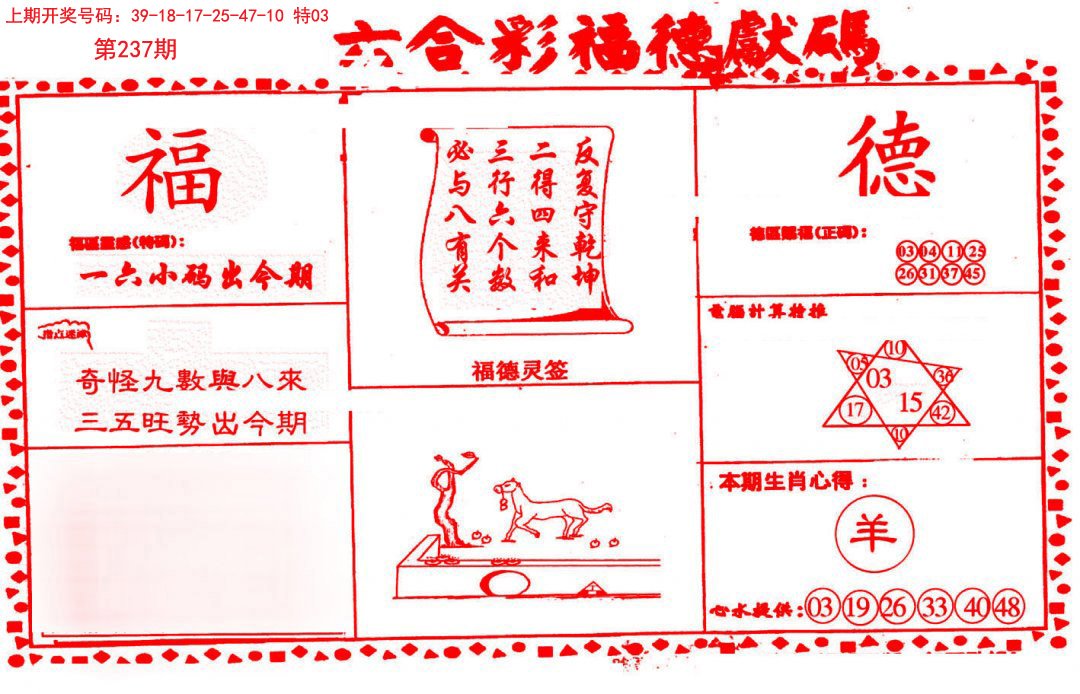 上期开奖号码：39-18-17-25-47-10 特03
第237期
六合彩福德獻碼
福
福區靈感(特碼):
一六小码出今期
指点迷津
奇怪九數與八來
三五旺勢出今期
反复守乾坤
二得四来和
三行六个数
必与八有关
福德灵签
德
德區賜福(正碼):
03 04 11 25
26 31 37 45
電腦計算特推
10
05
03
36
17
15
42
10
本期生肖心得：
羊
心水提供: 03 19 26 33 40 48